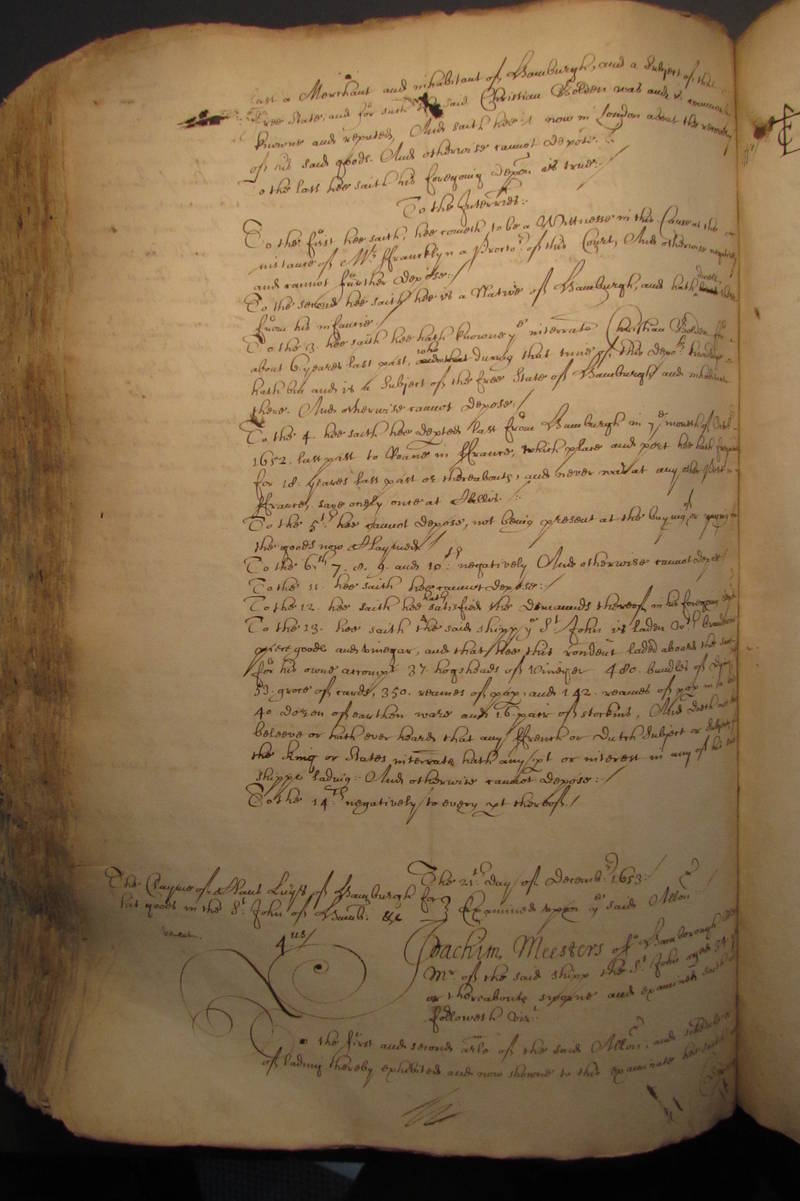 last a Merchant and inhabitant of Hamburgh, and a Subject of that
ffree State, and for such the said Christian Belden was and is commonly
knowne and reputed, And saith hee is now in London about the recovery
of his said goods. And otherwise cannot depose.
To the last hee saith his foregoing deposn is true:/
To the Interries:
To the first hee saith, hee cometh to be a Wittnesse in this Cause at the
instance of Mr ffrancklyn a Proctor of this Court, And otherwise negatively
and cannot further depose:/
To the second hee saith hee is a Native of Hamburgh, and hath dwelt
from his infancie
To the 3. hee saith hee hath knowne ye interrate Christian Belden for
about 6 yeares last past, who during that time of this depots knowledge
hath bin and is a Subject of the free State of Hamburgh and inhabitant
there. And otherwise cannot depose:/
To the 4. hee saith hee depted last from Hamburgh in ye month of Octob
1652. last past to Roane in ffrance, which place and port hee hath frequented
for 18. yeares last past or thereabouts, and never was at any other Port
ffrance, save onely once at
To the 5th hee cannot depose, not being present at the buying or
the goods now claymed
To the 6th 7. 8. 9. and 10th. negatively And otherwise cannot depose
To the 11. hee saith hee cannot depose:/
To the 12. hee saith hee hath satisfied the Demaunds thereof in his foregoing
To the 13. hee saith the said shipp ye St John is laden with
goods and vinegar, and that hee this rondent laded aboard the said
for his owne accompt 37. hogsheads of Vineger 480. bundles of
53. grose of cards, 350. reames of pap and 142. reames of pap in
40 dozen of earthen ware and 16. pair of stockins, And doth not
beleeve or hath ever heard that any ffrench or Dutch Subject or Subjects of
the King or States interrate hath any pt or interest in any of his said
shipps lading: And otherwise cannot depose:/
To the 14th negatively to every pt thereof./
The Clayme of Paul Luyts of Hamburgh for
his goods in the St. John of Hamb: &c
The 21th Day of Decemb: 1653:/
Examined upon ye said Allon
4us/
Joachim Meesters of Hamborough
Mr of the said shipp the St John aged 34
or thereabouts sworne and examined saith
followeth vizt
To the first and second arle of the said Allon, and schedule
of lading thereby exhibited and now showne to this examinate hee saith